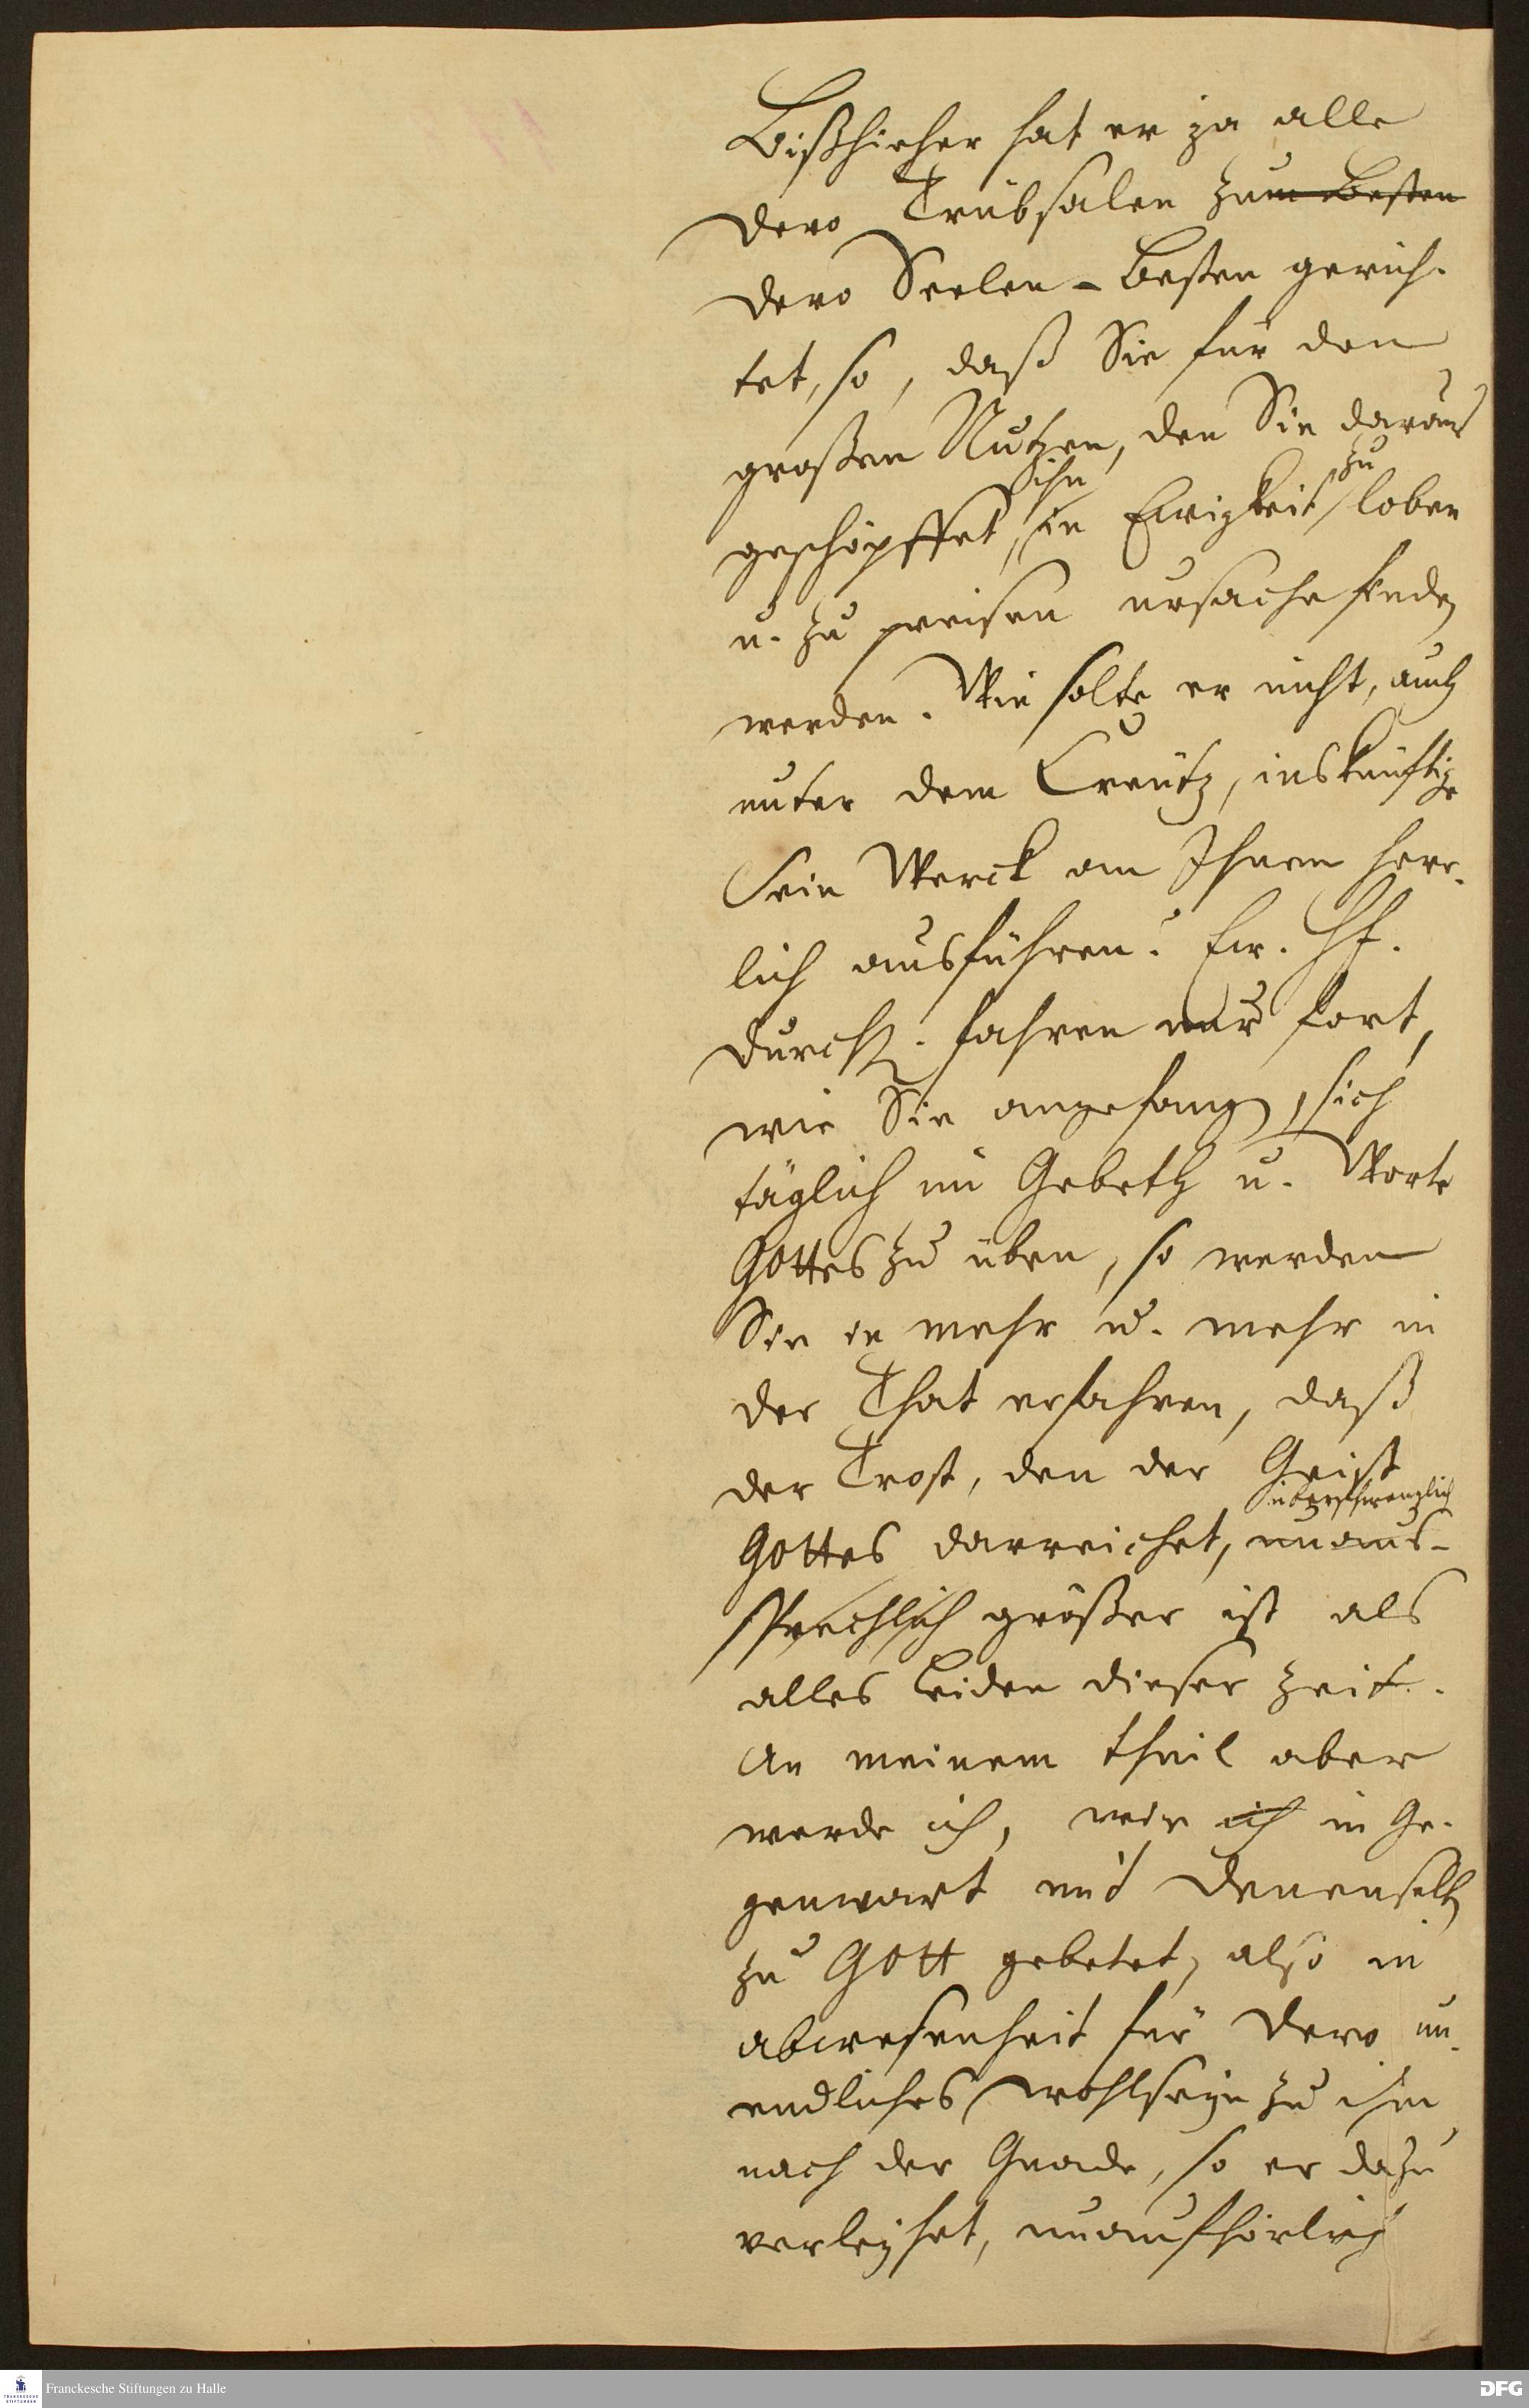 Bißhieher hat er ja alle
dero Trübsalen zum Besten
dero Seelen-Besten gerich-
tet, so, daß Sie für den
großen Nutzen, den Sie daraus
ihn zu
geschöpffet, in Ewigkeit loben
u. zu preisen ursache finden
werden. Wie solte er nicht, auch
unter dem Creutz, inskünftige
Sein Werck an Ihnen herr-
lich ausführen? Ew. Hf.
Durchl. fahren nur fort,
wie Sie angefangen, sich
täglich im Gebeth u. Worte
Gottes zu üben, so werden
Sie ie mehr u. mehr in
der That erfahren, daß
der Trost, den der Geist
überschwenglich
Gottes darreichet, unaus-
sprechlich größer ist als
alles Leiden dieser Zeit.
An meinem theil aber
werde ich, wie ich in Ge-
genwart mit Denenselben
zu Gott gebetet, also in
abwesenheit für Dero un-
endliches wohlseyn zu ihm
nach der Gnade, so er dazu
verleyhet, unaufhörlich
Franckesche Stiftungen zu Halle
FRANCKESCHE STIFTUNGEN
DFG